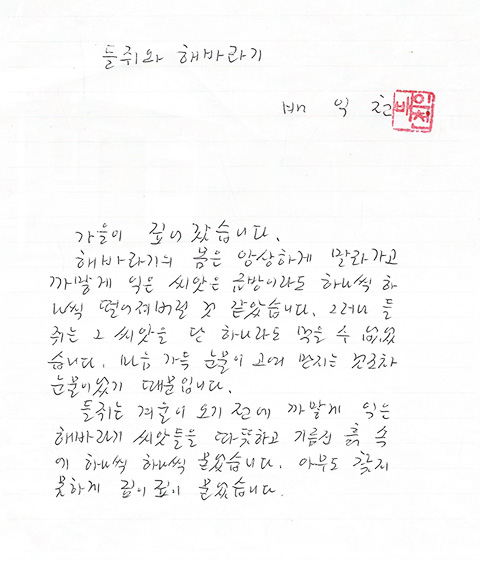 들쥐와 해바라기
배 익 천
가을이 깊어 갔습니다.
해바라기의 몸은 앙상하게 말라가고
까맣게 익은 씨앗은 금방이라도 하나씩 하
나씩 떨어져버릴 것 같았습니다. 그러나 들
쥐는 그 씨앗을 단 하나라도 먹을 수 없었
습니다. 마음 가득 눈물이 고여 만지는 것조차
눈물이었기 때문입니다.
들쥐는 겨울이 오기 전에 까맣게 익은
해바라기 씨앗들을 따뜻하고 기름진 흙 속
에 하나씩 하나씩 묻었습니다. 아무도 찾지
못하게 깊이 깊이 묻었습니다.